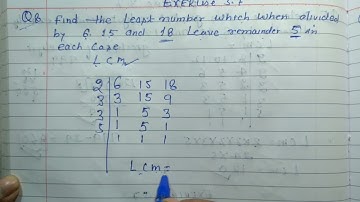 EXERCISE 3.7
Q8. Find the Least number which when divided
by 6 15 and 18 Leave remainder 5 in
each case
L C M
2 6 15 18
3 3 15 9
3 1 5 3
5 1 5 1
1 1 1
L C M =